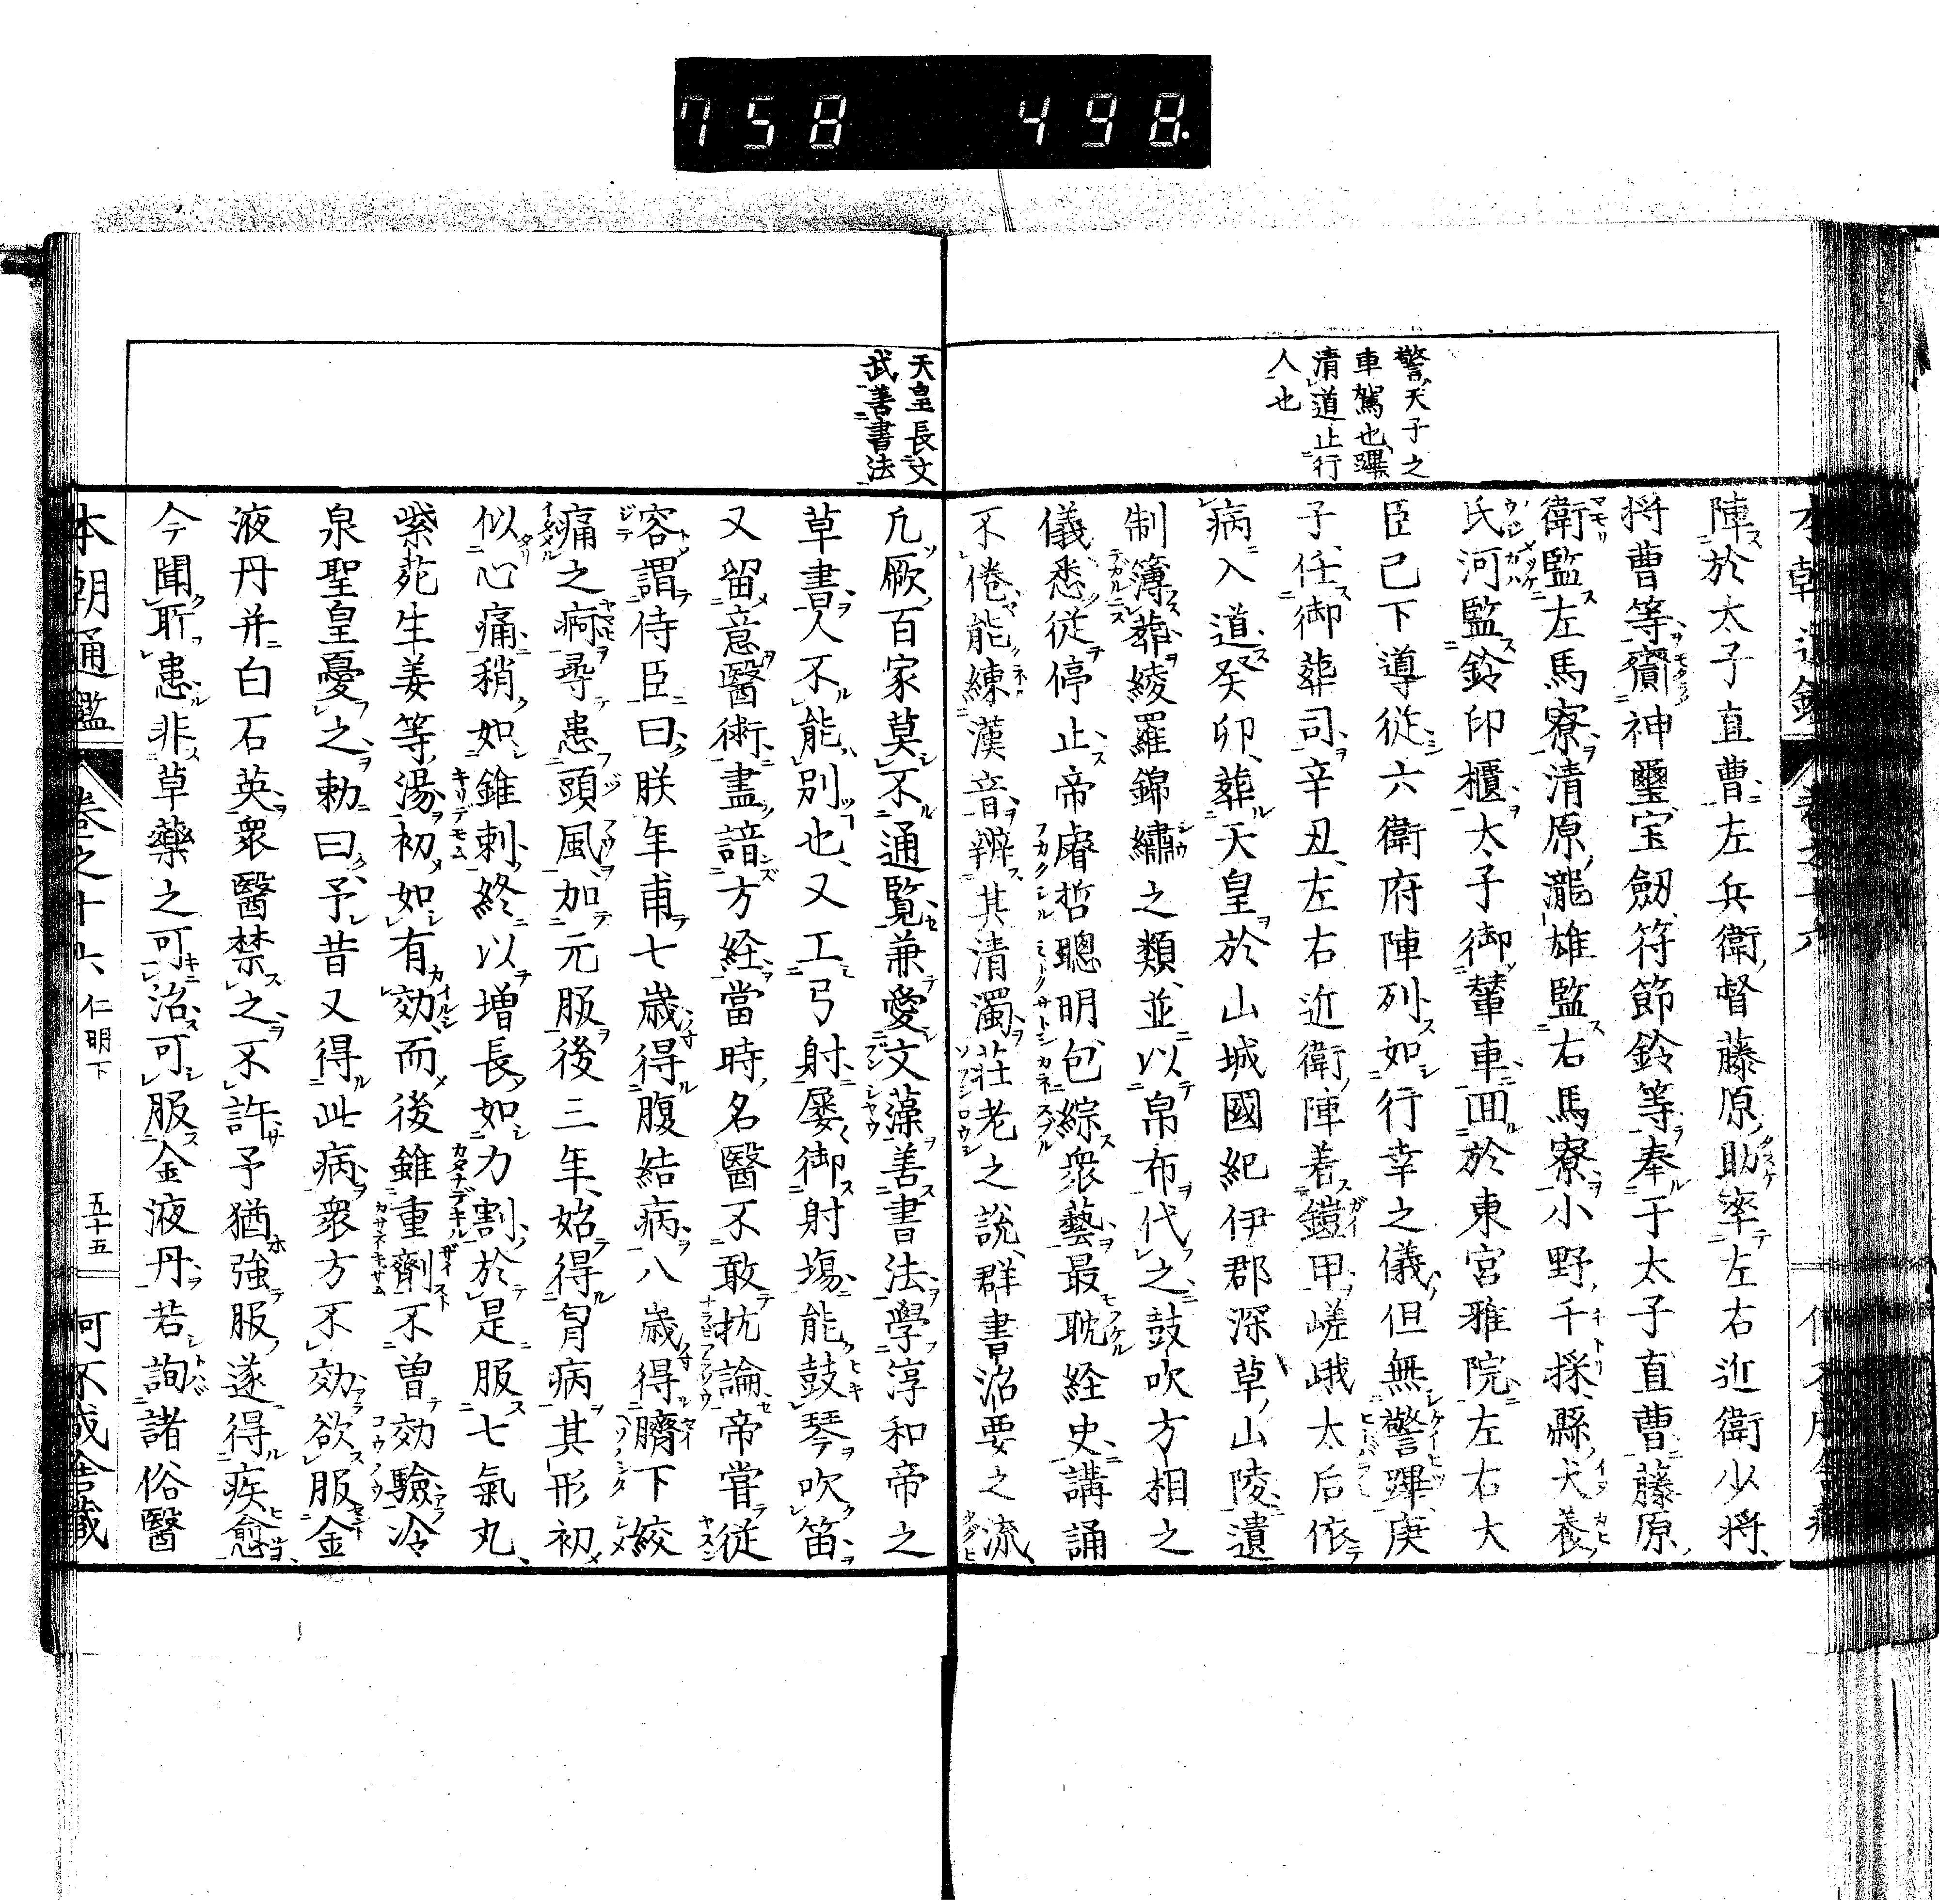 758 498.
警天子之
車駕也蹕
清道止行
人也
陣於太子直曹左兵衛督藤原助率左右近衛少将
将曹等齎神璽宝劔符節鈴等奉于太子直曹藤原
衛監左馬寮清原瀧雄監右馬寮小野千採縣犬養
氏河監鈴印櫃太子御輦車囬於東宮雅院左右大
臣已下導從六衛府陣列如行幸之儀但無警蹕庚
子任御葬司辛丑左右近衛陣着鎧甲嵯峨太后依
病入道癸卯葬天皇於山城國紀伊郡深草山陵遺
制簿葬綾羅錦繡之類並以帛布代之鼓吹方相之
儀悉從停止帝睿哲聰明包綜衆藝最耽経史講誦
不倦能練漢音辨其清濁荘老之説群書治要之流
天皇長文
武善書法
凢厥百家莫不通覧兼愛文藻善書法學淳和帝之
草書人不能別也又工弓射屡御射場能鼓琴吹笛
又留意醫術盡諳方経當時名醫不敢抗論帝嘗從
容謂侍臣曰朕年甫七歳得腹結病八歳得臍下絞
痛之痾尋患頭風加元服後三年始得胷病其形初
似心痛稍如錐刺終以増長如刀割於是服七氣丸
紫菀生姜等湯初如有効而後雖重劑不曽効驗冷
泉聖皇憂之勅曰予昔又得此病衆方不効欲服金
液丹并白石英衆醫禁之不許予猶強服遂得疾愈
今聞所患非草藥之可治可服金液丹若詢諸俗醫
本朝通鑑 巻之十六 仁明下 五十五